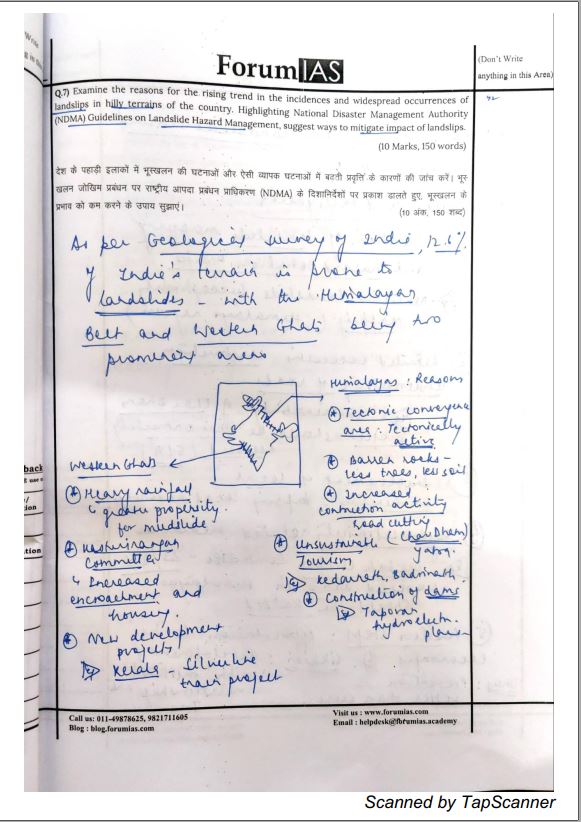 Forum|IAS
(Don't Write
anything in this Area)
Q.7) Examine the reasons for the rising trend in the incidences and widespread occurrences of
landslips in hilly terrains of the country. Highlighting National Disaster Management Authority
(NDMA) Guidelines on Landslide Hazard Management, suggest ways to mitigate impact of landslips.
(10 Marks, 150 words)
देश के पहाड़ी इलाकों में भूस्खलन की घटनाओं और ऐसी व्यापक घटनाओं में बढ़ती प्रवृत्ति के कारणों की जांच करें। भू
स्खलन जोखिम प्रबंधन पर राष्ट्रीय आपदा प्रबंधन प्राधिकरण (NDMA) के दिशानिर्देशों पर प्रकाश डालते हुए, भूस्खलन के
प्रभाव को कम करने के उपाय सुझाएं।
(10 अंक, 150 शब्द)
As per Geological survey of India, 12.6%
of India's terrain is prone to
landslides - with the Himalayan
Belt and Western Ghats being two
prominent areas
Himalayas : Reasons
Tectonic convergence
area : Tectonically
active
Barren rocks -
less trees, less soil
Increased
construction activity
Road cutting
(- Char Dham)
Yatra.
Unsustainable
Tourism
Kedarnath, Badrinath.
Construction of dams
Tapovan
hydroelectric
plant
Western Ghats
Heavy rainfall
↳ greater propensity
for mudslide
Kasturirangan
Committee
↳ Increased
encroachment and
housing.
New development
projects
Kerala - Silverline
train project
back
tion
Call us: 011-49878625, 9821711605
Blog : blog.forumias.com
Visit us : www.forumias.com
Email : helpdesk@forumias.academy
Scanned by TapScanner